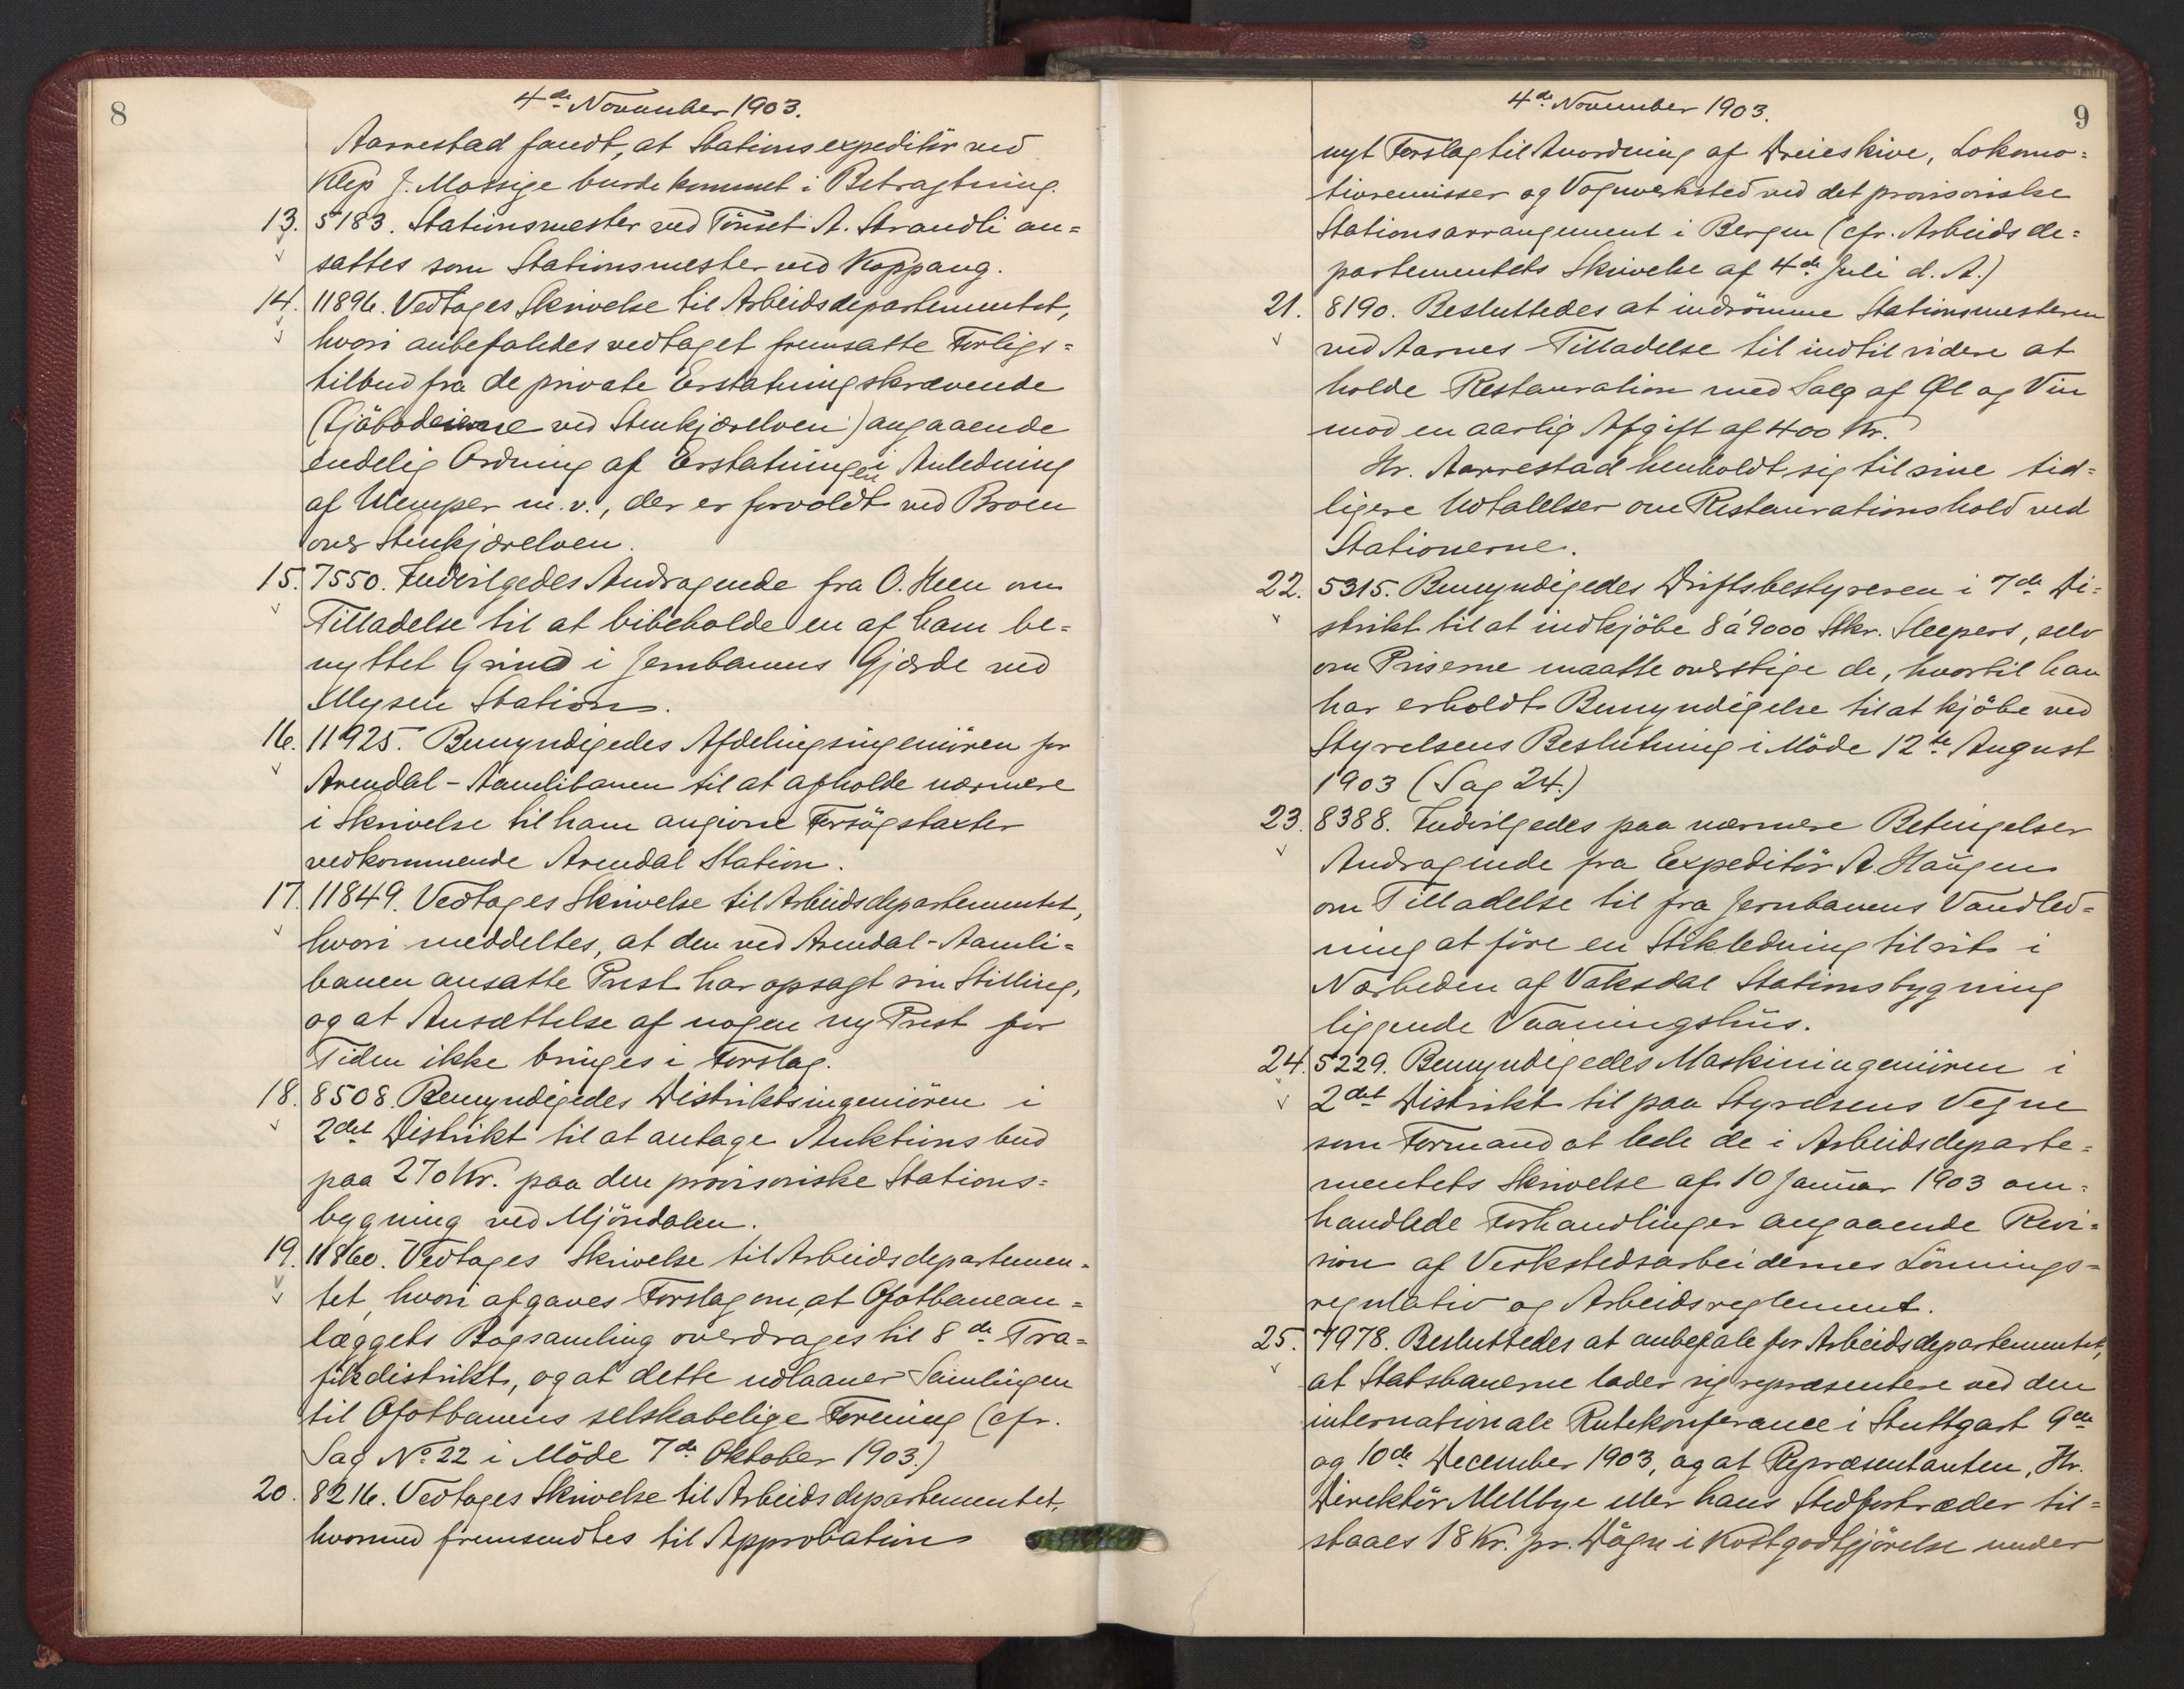 8
4de November 1903.
Aarrestad fandt, at Stationsexpeditör ved
Klep J. Mossige burde kommet i Betragtning.
13. 5183. Stationsmester ved Tönset A. Strandli an=
sattes som Stationsmester ved Koppang.
14. 11896. Vedtoges Skrivelse til Arbeidsdepartementet,
hvori anbefaledes vedtaget fremsatte Forligs=
tilbud fra de private Erstatningskrævende
(Sjöbodeierne ved Stenkjærelven) angaaende
endelig Ordning af Erstatningen i Anledning
af Ulemper m.v., der er forvoldt ved Broen
over Stenkjærelven.
15. 7550. Indvilgedes Andragende fra O. Heen om
Tilladelse til at bibeholde en af ham be=
nyttet Grind i Jernbanens Gjærde ved
Mysen Station.
16. 11925. Bemyndigedes Afdelingsingeniören for
Arendal-Aamlibanen til at afholde nærmere
i Skrivelse til ham angivne Forsögstaxter
vedkommende Arendal Station.
17. 11849. Vedtoges Skrivelse til Arbeidsdepartementet,
hvori meddeltes, at den ved Arendal-Aamli=
banen ansatte Prest har opsagt sin Stilling,
og at Ansættelse af nogen ny Prest for
Tiden ikke bringes i Forslag.
18. 8508. Bemyndigedes Distriktsingeniören i
2det Distrikt til at antage Auktionsbud
paa 270 Kr. paa den provisoriske Stations=
bygning ved Mjöndalen.
19. 11860. Vedtoges Skrivelse til Arbeidsdepartemen=
tet, hvori afgaves Forslag om, at Ofotbanean=
læggets Bogsamling overdrages til 8de Tra=
fikdistrikt, og at dette udlaaner Samlingen
til Ofotbanens selskabelige Forening (cfr.
Sag No 22 i Möde 7de Oktober 1903.)
20. 8216. Vedtoges Skrivelse til Arbeidsdepartementet,
hvormed fremsendtes til Approbation
9
4de November 1903.
nyt Forslag til Anordning af Dreieskive, Lokomo=
tivremisser og Vognverksted ved det provisoriske
Stationsarrangement i Bergen (cfr. Arbeidsde=
partementets Skrivelse af 4de Juli d. A.)
21. 8190. Besluttedes at indrömme Stationsmesteren
ved Aarnes Tilladelse til indtil videre at
holde Restauration med Salg af Øl og Vin
mod en aarlig Afgift af 400 Kr.
Hr. Aarrestad henholdt sig til sine tid=
ligere Udtalelser om Restaurationshold ved
Stationerne.
22. 5315. Bemyndigedes Driftsbestyreren i 7de Di=
strikt til at indkjöbe 8 á 9000 Stkr. Sleepers, selv
om Priserne maatte overstige de, hvortil han
har erholdt Bemyndigelse til at kjöbe ved
Styrelsens Beslutning i Möde 12te August
1903 (Sag 24.)
23. 8388. Indvilgedes paa nærmere Betingelser
Andragende fra Expeditör A. Haugen
om Tilladelse til fra Jernbanens Vandled=
ning at före en Stikledning til sit i
Nærheden af Vaksdal Stationsbygning
liggende Vaaningshus.
24. 5229. Bemyndigedes Maskiningeniören i
2det Distrikt til paa Styrelsens Vegne
som Formand at lede de i Arbeidsdeparte=
mentets Skrivelse af 10 Januar 1903 om=
handlede Forhandlinger angaaende Revi=
sion af Verkstedsarbeidernes Lönnings=
regulativ og Arbeidsreglement.
25. 7978. Besluttedes at anbefale for Arbeidsdepartementet,
at Statsbanerne lader sig repræsentere ved den
internationale Rutekonferance i Stuttgart 9de
og 10de December 1903, og at Repræsentanten, Hr.
Direktör Mellbye eller hans Stedfortræder til=
staaes 18 Kr. pr. Dögn i Kostgodtgjörelse under